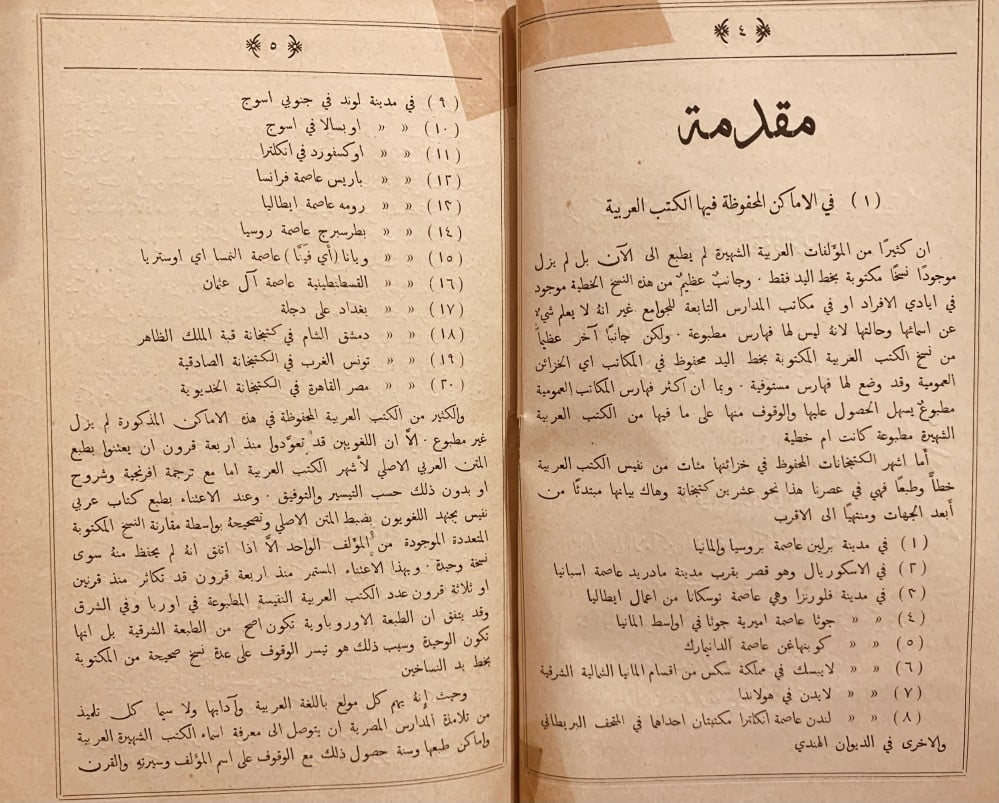 ٤
مقدمة
( ١ ) في الاماكن المحفوظة فيها الكتب العربية
ان كثيرًا من المؤلفات العربية الشهيرة لم يطبع الى الآن بل لم يزل
موجودًا نسخًا مكتوبة بخط اليد فقط ٠ وجانبٌ عظيمٌ من هذه النسخ الخطية موجود
في ايادي الافراد او في مكاتب المدارس التابعة للجوامع غير انهُ لا يعلم شيءٌ
عن اسمائها وحالتها لانهُ ليس لها فهارس مطبوعة ٠ ولكن جانبًا آخر عظيمًا
من نسخ الكتب العربية المكتوبة بخط اليد محفوظ في المكاتب اي الخزائن
العمومية وقد وضع لها فهارس مستوفية ٠ وبما ان اكثر فهارس المكاتب العمومية
مطبوعٌ يسهل الحصول عليها والوقوف منها على ما فيها من الكتب العربية
الشهيرة مطبوعة كانت ام خطية
أما اشهر الكتبخانات المحفوظ في خزائنها مئات من نفيس الكتب العربية
خطاً وطبعًا فهي في عصرنا هذا نحو عشرين كتبخانة وهاك بيانها مبتدئًا من
أبعد الجهات ومنتهيًا الى الاقرب
( ١ ) في مدينة برلين عاصمة بروسيا والمانيا
( ٢ ) في الاسكوريال وهو قصر بقرب مدينة مادريد عاصمة اسبانيا
( ٣ ) في مدينة فلورنزا وهي عاصمة توسكانا من اعمال ايطاليا
( ٤ ) » » جوثا عاصمة اميرية جوثا في اواسط المانيا
( ٥ ) » » كوبنهاغن عاصمة الدانيمارك
( ٦ ) » » لايبسك في مملكة سكس من اقسام المانيا الشمالية الشرقية
( ٧ ) » » لايدن في هولاندا
( ٨ ) » » لندن عاصمة انكلترا مكتبتان احداهما في المتحف البريطاني
والاخرى في الديوان الهندي
٥
( ٩ ) في مدينة لوند في جنوبي اسوج
( ١٠ ) » » اوبسالا في اسوج
( ١١ ) » » اوكسفورد في انكلترا
( ١٢ ) » » باريس عاصمة فرانسا
( ١٣ ) » » رومه عاصمة ايطاليا
( ١٤ ) » » بطرسبرج عاصمة روسيا
( ١٥ ) » » ويانا (أي فيَنَّا) عاصمة النمسا اي اوستريا
( ١٦ ) » » القسطنطينية عاصمة آل عثمان
( ١٧ ) » » بغداد على دجلة
( ١٨ ) » » دمشق الشام في كتبخانة قبة الملك الظاهر
( ١٩ ) » » تونس الغرب في الكتبخانة الصادقية
( ٢٠ ) » » مصر القاهرة في الكتبخانة الخديوية
والكثير من الكتب العربية المحفوظة في هذه الاماكن المذكورة لم يزل
غير مطبوع ٠ الاَّ ان اللغويين قد تعوَّدوا منذ اربعة قرون ان يعتنوا بطبع
المتن العربي الاصلي لأشهر الكتب العربية اما مع ترجمة افرنجية وشروح
او بدون ذلك حسب التيسير والتوفيق ٠ وعند الاعتناء بطبع كتاب عربي
نفيس يجتهد اللغويون بضبط المتن الاصلي وتصحيحهُ بواسطة مقارنة النسخ المكتوبة
المتعددة الموجودة من المؤلف الواحد الاَّ اذا اتفق انهُ لم يحفظ منهُ سوى
نسخة وحيدة ٠ وبهذا الاعتناء المستمر منذ اربعة قرون قد تكاثر منذ قرنين
او ثلاثة قرون عدد الكتب العربية النفيسة المطبوعة في اوربا وفي الشرق
وقد يتفق ان الطبعة الاوروباوية تكون اصح من الطبعة الشرقية بل انها
تكون الوحيدة وسبب ذلك هو تيسر الوقوف على عدة نسخ صحيحة من المكتوبة
بخط يد النساخين
وحيث إنهُ يهم كل مولع باللغة العربية وآدابها ولا سيما كل تلميذ
من تلامذة المدارس المصرية ان يتوصل الى معرفة اسماء الكتب الشهيرة العربية
واماكن طبعها وسنة حصول ذلك مع الوقوف على اسم المؤلف وسيرته والقرن